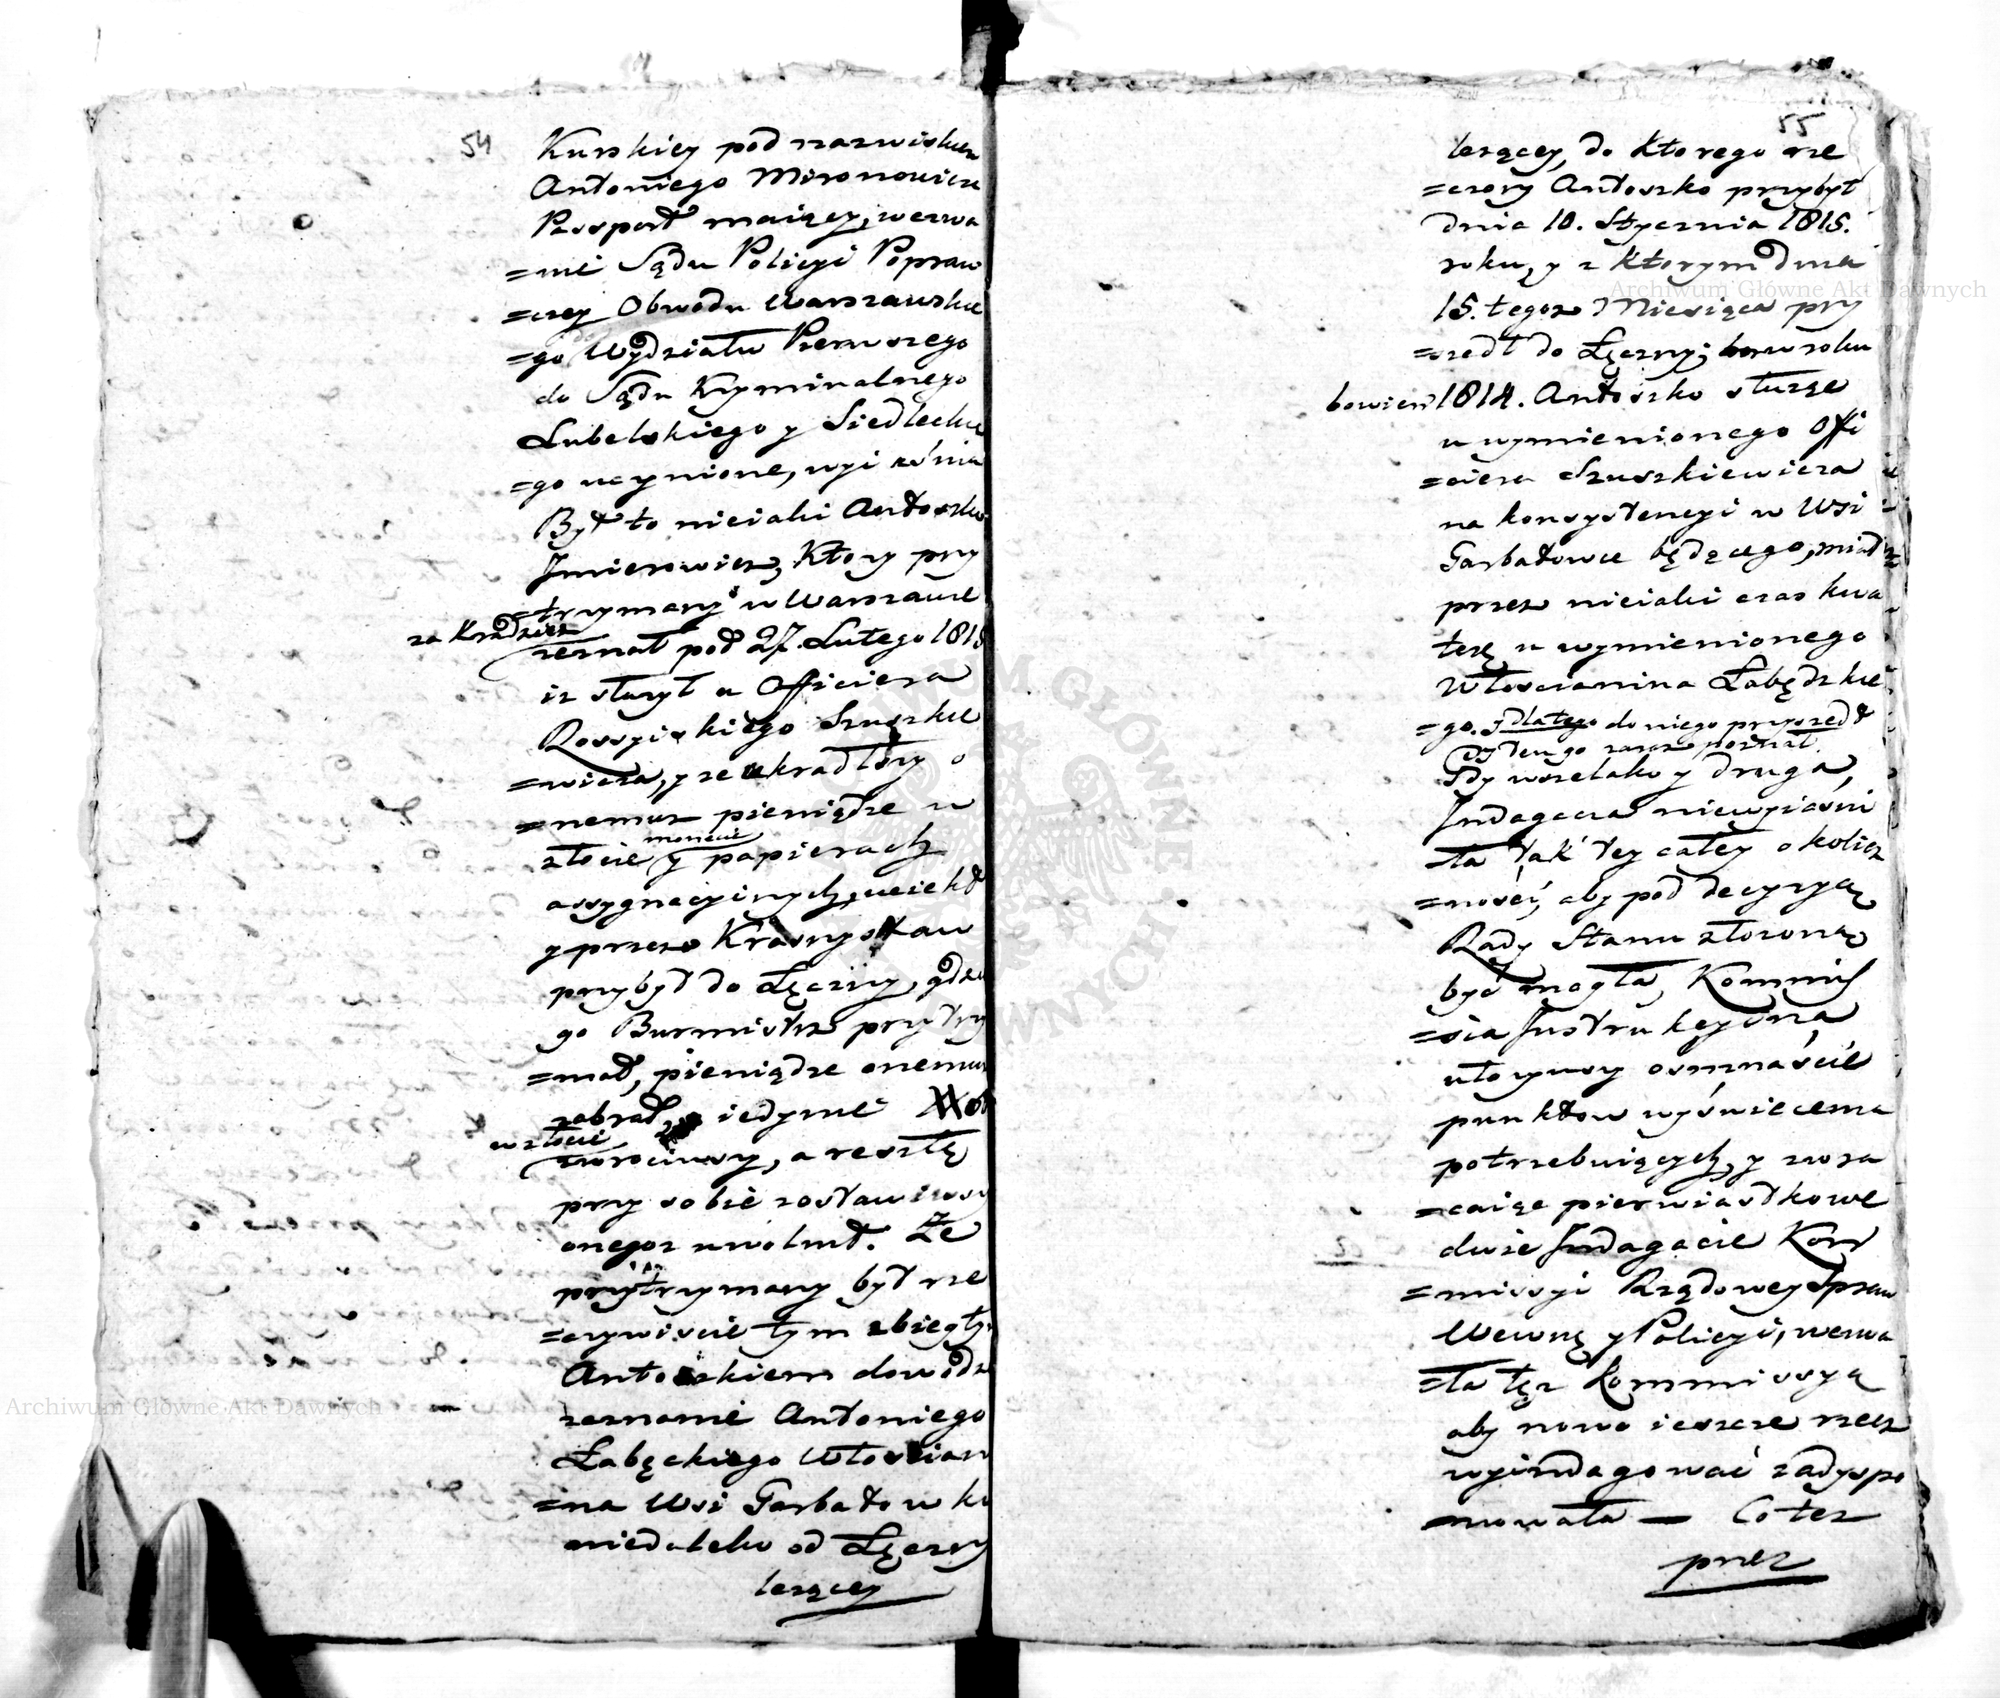 54
Kurskiey pod nazwiskiem
Antoniego Mironowicza
Passport maiący, wezwa
=nie Sądu Policyi Popraw
=czey Obwodu Warszawskie
=go Wydziału Pierwszego
do Sądu Kryminalnego
Lubelskiego y Siedleckie
=go uczynione, wyiaśnia
Był to nieiaki Antoszko
Jmierowicz, Ktory przy
=trzymany w Warszawie
za Kradzież
zeznał pod 27. Lutego 1815
iż służył u Officiera
Rossyiskiego Szuszkie
=wicza, y że ukradłszy o
=nemuz pieniądze w
monecie
złocie y papierach
assygnacyinych, uciekł
y przez Krasnystaw
przybył do Łęczny, gdzie
go Burmistrz przytrzy
=mał, pieniądze onemuz
zabrał, iedynie
w złocie
zwrociwszy, a resztę
przy sobie zostawiwszy
onegoz uwolnił. Ze
przytrzymany był rze
=czywiscie tym zbiegłym
Antoszkiem dowodzi
zeznanie Antoniego
Łabęckiego Włoscian
=na Wsi Garbatowki
niedaleko od Łęczny
lezącey
55
lezącey, do Ktorego rze
=czony Antoszko przybył
dnia 10. Stycznia 1815.
roku, y z Ktorym dnia
15. tegoz Miesiąca przy
=szedł do Łęczny; w roku
bowiem 1814. Antoszko służąc
u wymienionego Offi
=ciera Szuszkiewicza
na konsystencyi w Wsi
Garbatowce będącego, miał
przez nieiaki czas kwa
terę u wymienionego
Włoscianina Łabędzkie
=go. y dlatego do niego przyszedł
y ten go zaraz poznał.
Gdy wszelako y druga
Indagacia niewyiasni
=ła tak tey całey okolicz
=nosci, aby pod decyzyą
Rady Stanu złozoną
być mogła, Kommis
=sia Instrukcyina
utozywszy osmnaście
punktow wyświecenia
potrzebuiących, y zwra
=caiąc pierwiastkowe
dwie Indagacie Kom
=missyi Rządowey Spraw
Wewnę y Policyi, wezwa
=ła tęż Kommissyą
aby nowo ieszcze rzecz
wyindagować zadyspo
=nowała — Co tez
przez
Archiwum Główne Akt Dawnych
Archiwum Główne Akt Dawnych